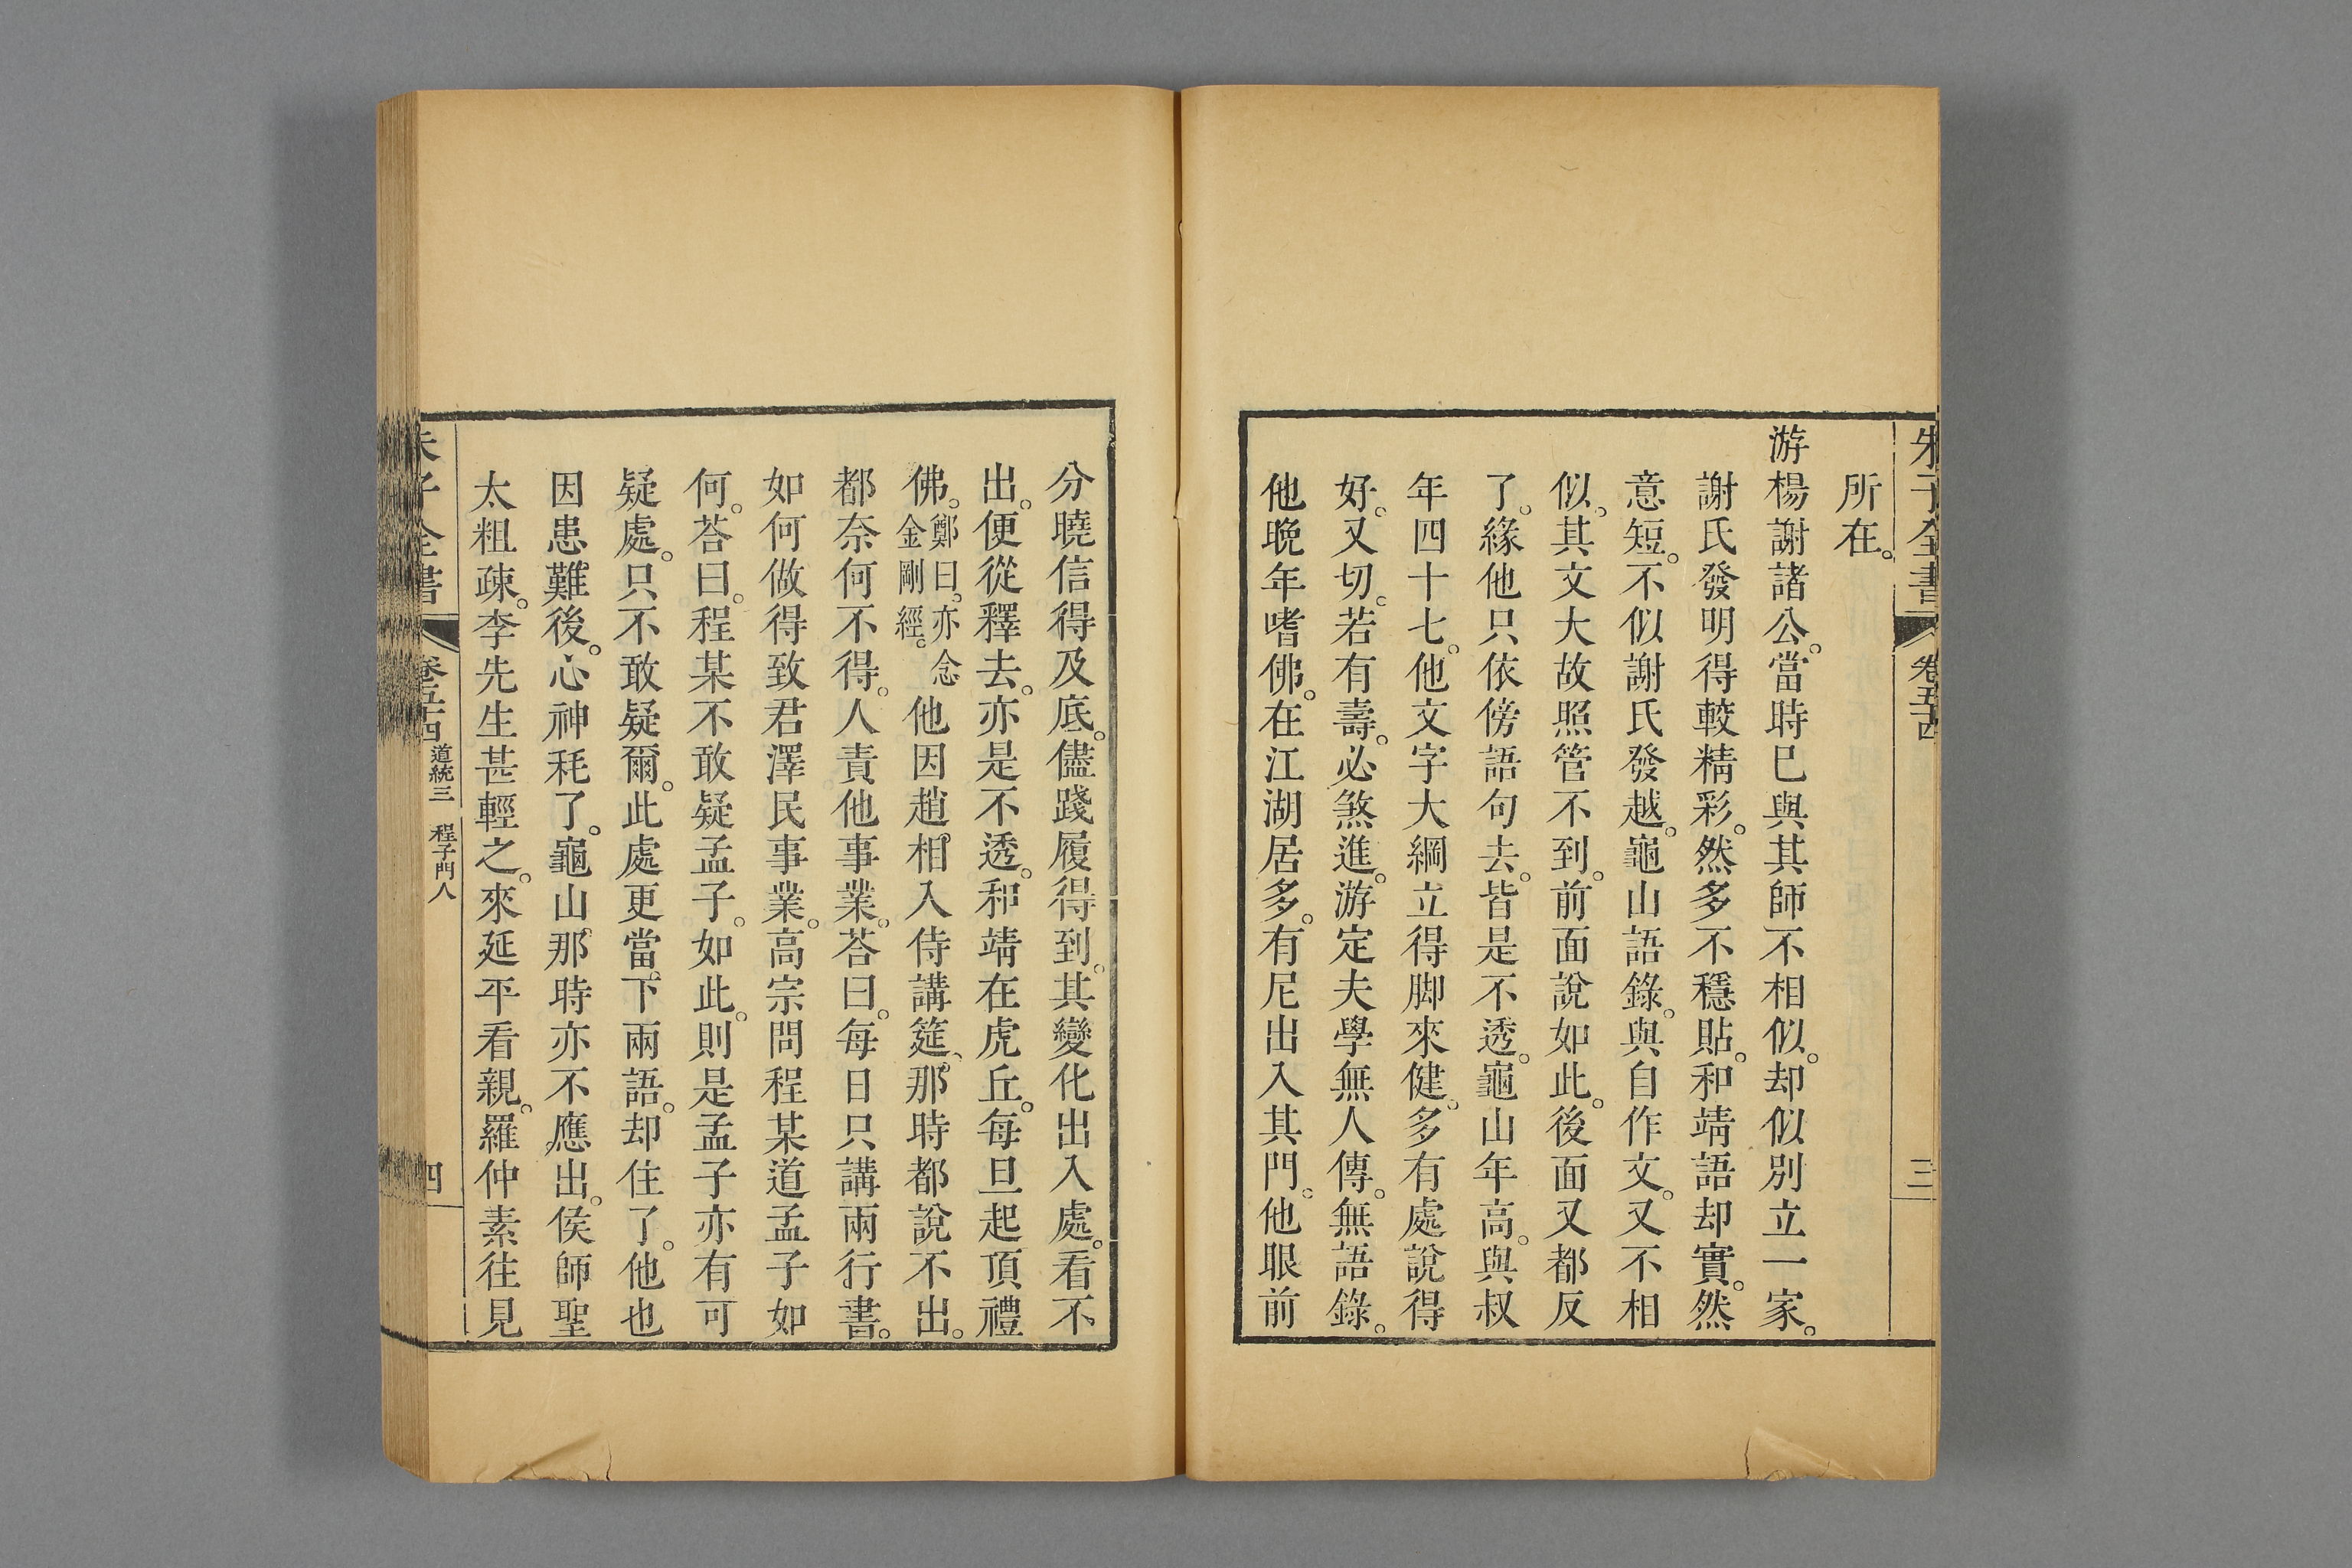 朱子全書
卷五十四
三
所在。
游楊謝諸公。當時已與其師不相似。却似別立一家。
謝氏發明得較精彩。然多不穩貼。和靖語却實。然
意短。不似謝氏發越。龜山語錄。與自作文。又不相
似。其文大故照管不到。前面說如此。後面又都反
了。緣他只依傍語句去。皆是不透。龜山年高。與叔
年四十七。他文字大綱立得脚來健。多有處說得
好。又切。若有壽。必煞進。游定夫學無人傳。無語錄。
他晚年嗜佛。在江湖居多。有尼出入其門。他眼前
分曉信得及底。儘踐履得到。其變化出入處。看不
出。便從釋去。亦是不透。和靖在虎丘。每旦起頂禮
佛。鄭曰。亦念金剛經。他因趙相入侍講筵、那時都說不出。
都奈何不得。人責他事業。荅曰。每日只講兩行書。
如何做得致君澤民事業。高宗問程某道孟子如
何。荅曰。程某不敢疑孟子。如此。則是孟子亦有可
疑處。只不敢疑爾。此處更當下兩語。却住了。他也
因患難後。心神耗了。龜山那時亦不應出。侯師聖
太粗疎。李先生甚輕之。來延平看親。羅仲素往見
朱子全書
卷五十四
道統三 程子門人
四